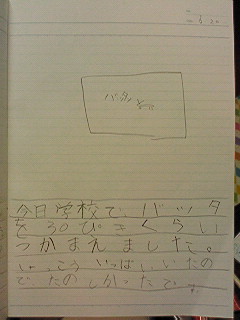 バッタ
今日学校で、バッタ
を30ぴきくらい
つかまえました。
いっぱいいたの
でたのしかったです。